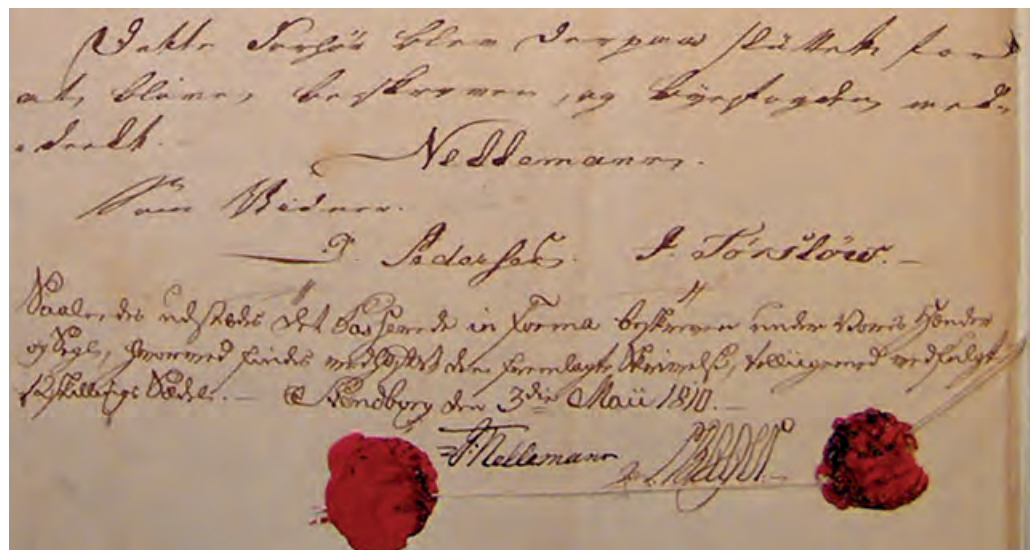 Dette Forhør blev derpaa sluttet for
at blive beskreven, og Byefogden med-
deelt.
Nellemann.
Som Vidner.
P. Pedersen. J. Törslöw.
Saaledes udstædes det Passerede in Forma beskreven under Voris Hænder
og Segl, hvorved findes vedhæftet den fremlagte Skrivelse, tilligemed vedfulgt
12 Skillings Sædel. — Svendborg den 3die Maii 1810.
Nellemann